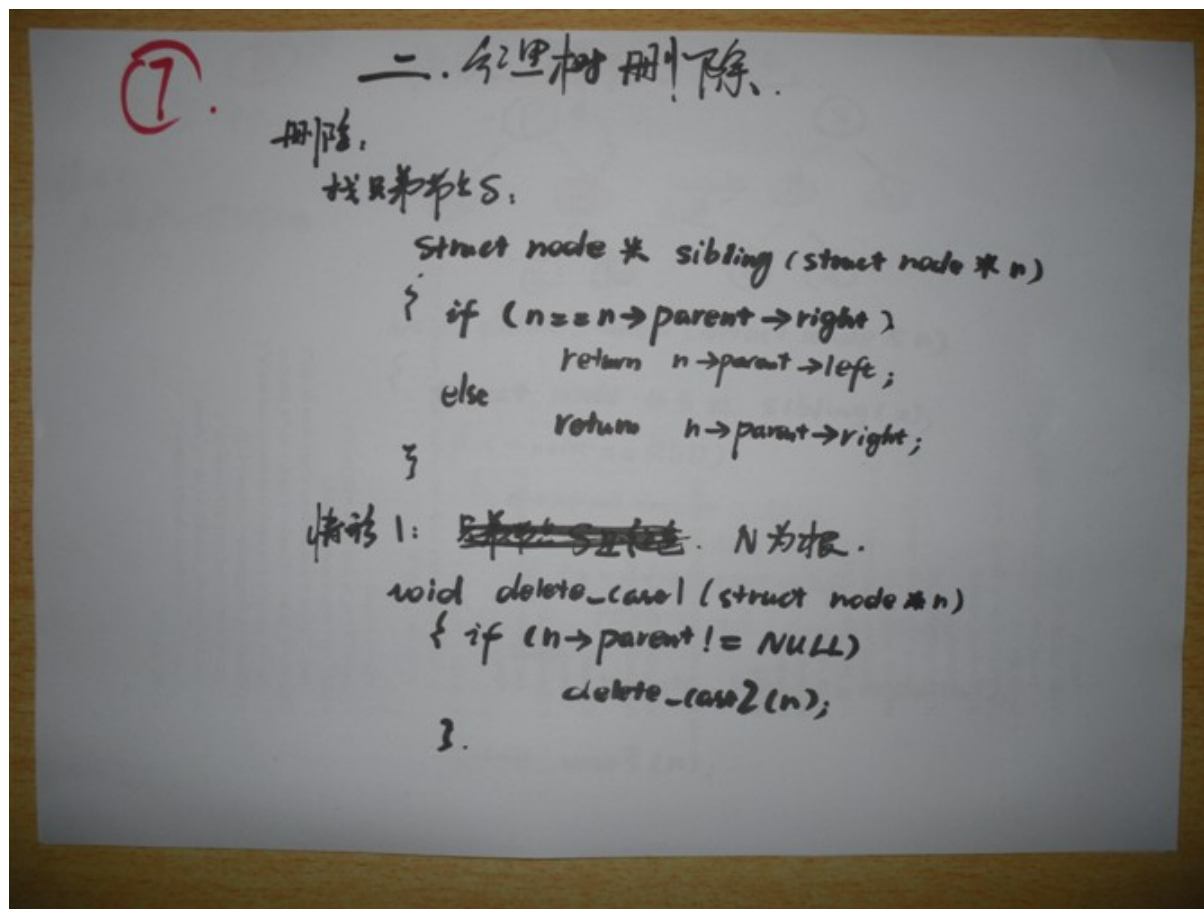 ⑦.
二.红黑树删除.
删除:
找兄弟节点S:
struct node * sibling (struct node * n)
{ if (n==n→parent→right)
return n→parent→left;
else
return n→parent→right;
}
情形1: N为根.
void delete_case1 (struct node *n)
{ if (n→parent != NULL)
delete_case2 (n);
}.